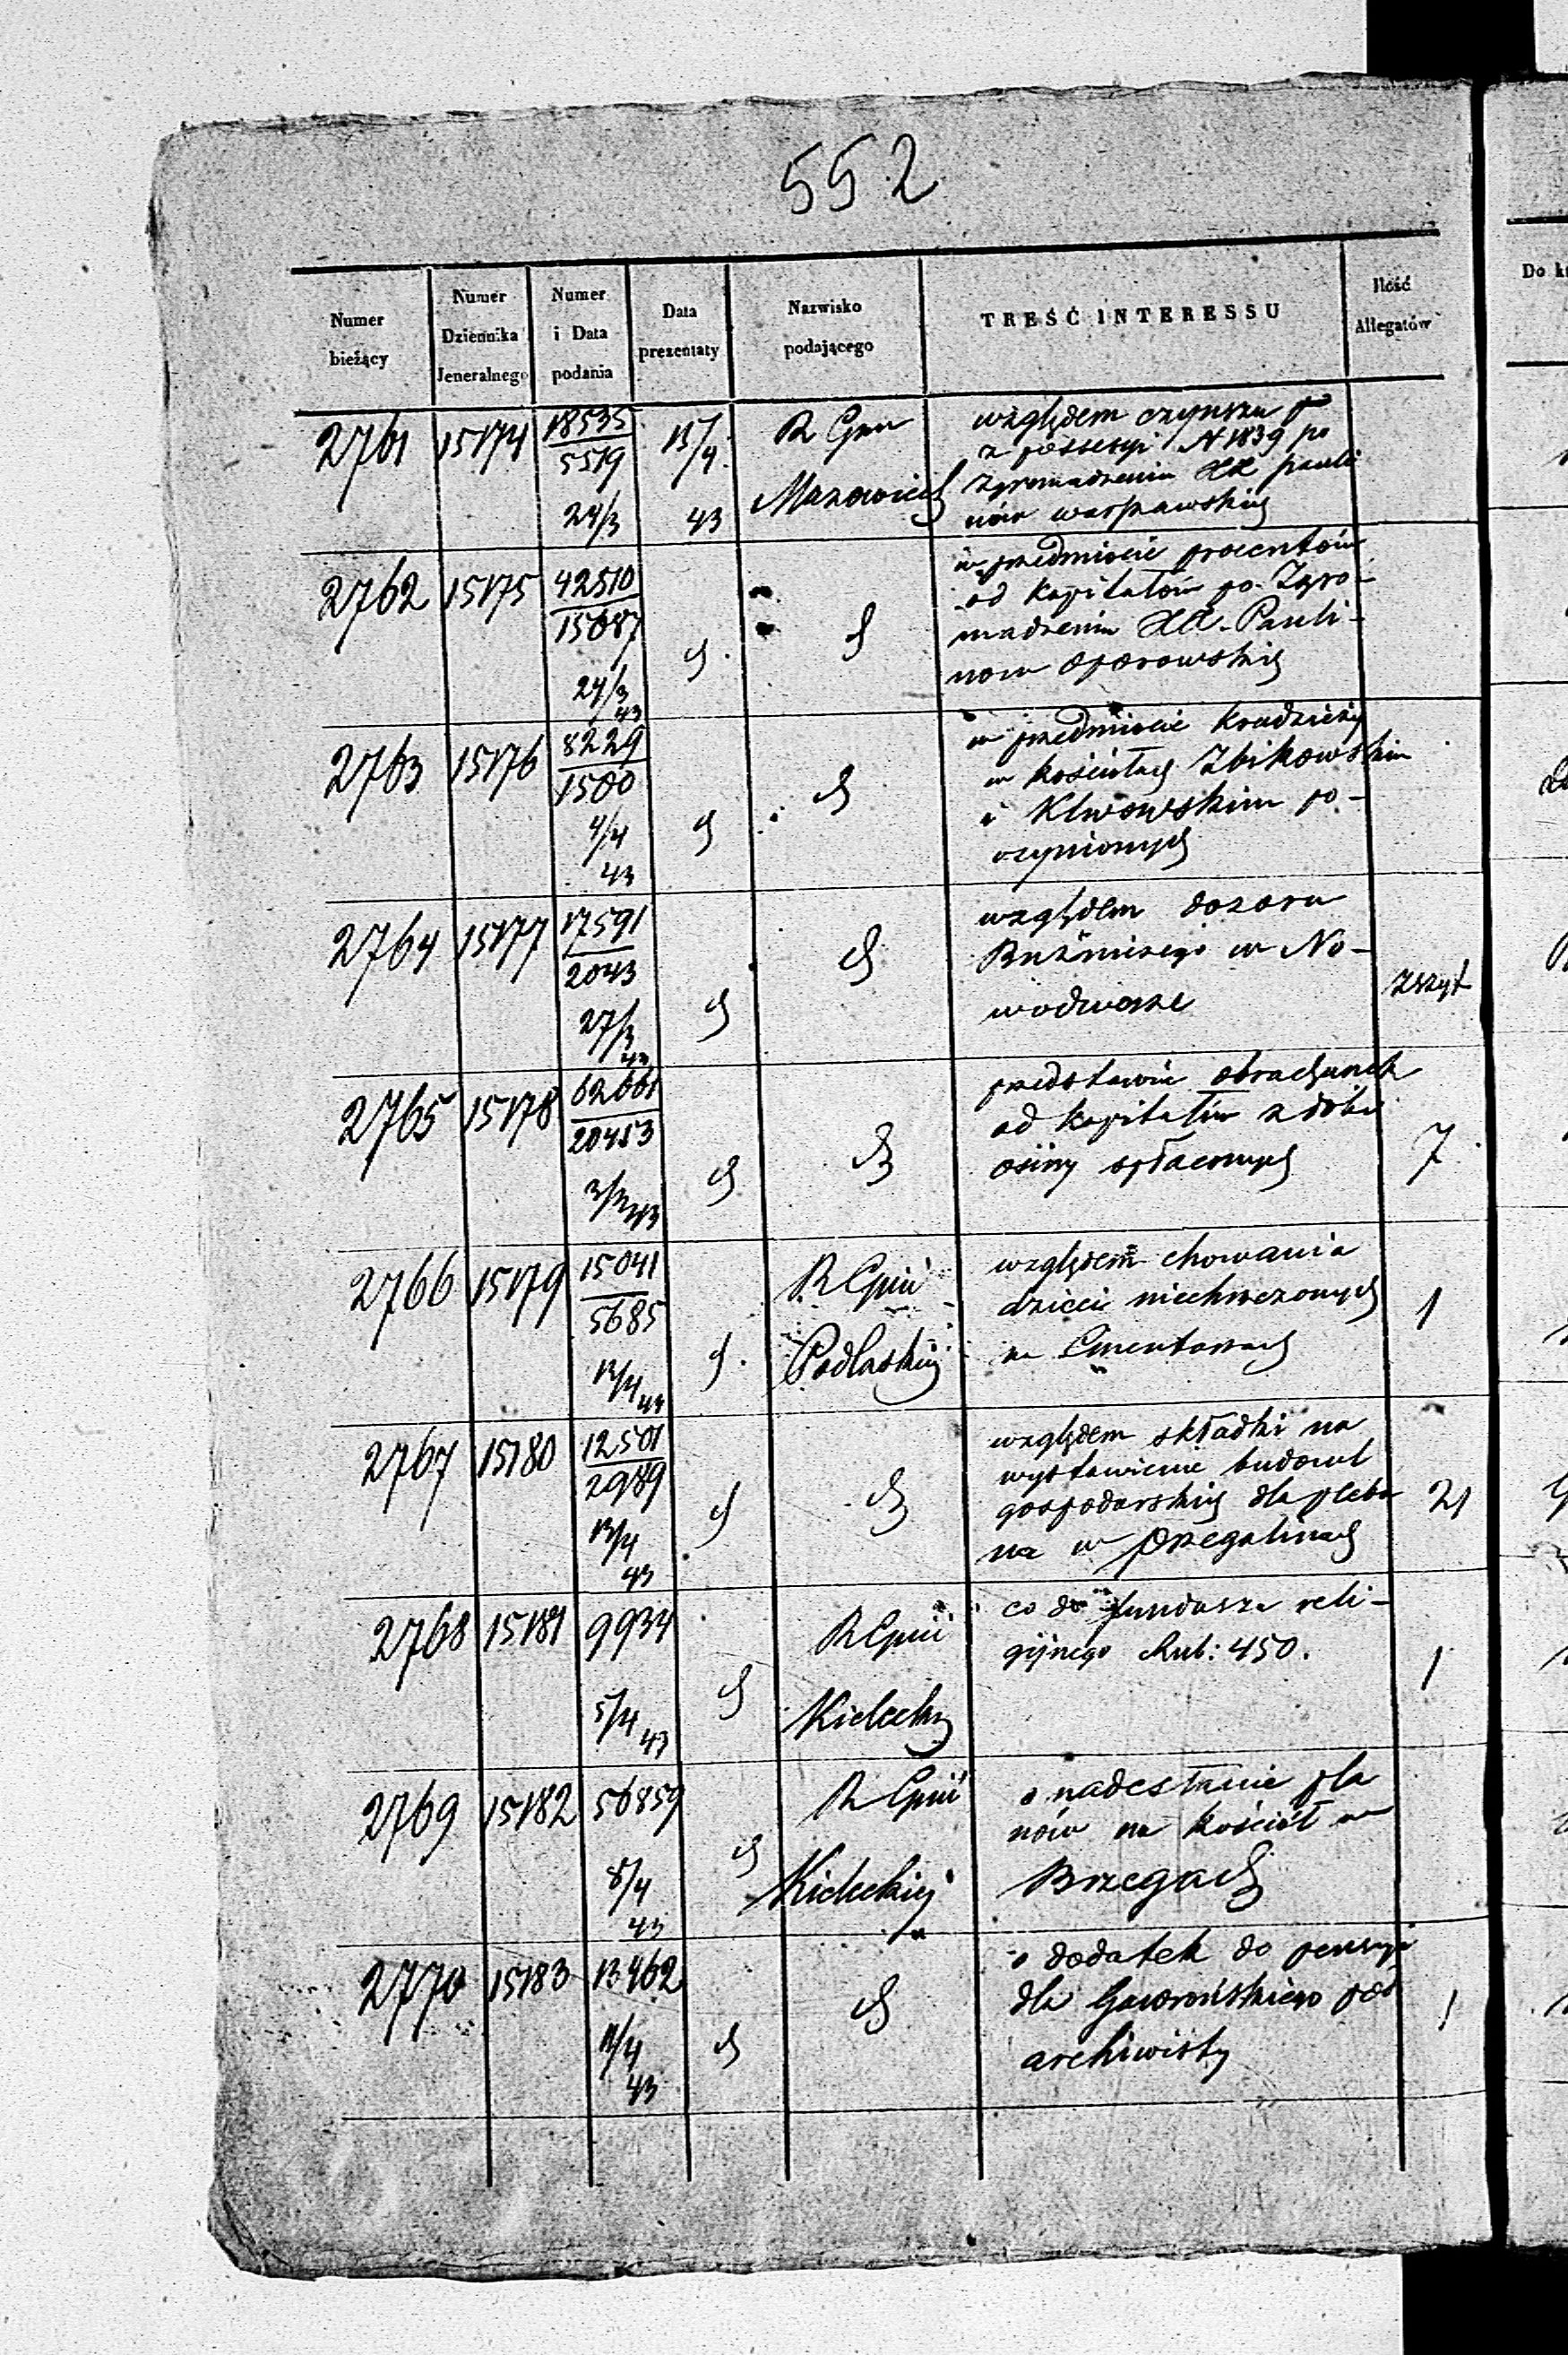 552
Numer bieżący
Numer Dziennika Jeneralnego
Numer i Data podania
Data prezentaty
Nazwisko podającego
TREŚĆ INTERESSU
Ilość Allegatów
Do
2761 15174 18535 / 5519 24/3 13/4 43 R Gnu Mazowieck
względem czynszu
z possessyi N 1839 po
Zgromadzeniu XX pauli
nów warszawskich
2762 15175 42510 / 15087 24/3 43 d d
w przedmiocie procentów
od kapitałów po Zgro-
madzeniu XX. Pauli-
now oporowskich
2763 15176 8229 / 1500 4/4 43 d d
w przedmiocie kradzieży
w kościołach Zbikowskim
i Klwowskim po-
czynionych
2764 15177 17591 / 2043 27/3 43 d d
względem dozoru
Bużniczego w No-
wodworze
zszyt
2765 15178 62661 / 20453 43 d d
przedstawia obrachunek
od kapitałów z dóbr
osiny spłaconych
7
2766 15179 15041 / 5685 12/4 43 d. R Gnii Podlaskiej
względem chowania
dzieci niechrzczonych
na Cmentarzach
1
2767 15180 12501 / 2989 13/4 43 d d
względem składki na
wystawienie budowl
gospodarskich dla pleba
na w przegalinach
21
2768 15181 9934 5/4 43 d R Gnii Kieleckiej
co do funduszu reli-
gijnego Rub: 450.
1
2769 15182 56859 8/4 43 d R Gnii Kieleckiej
o nadesłanie pla
nów na kościół w
Brzegach
2770 15183 13462 12/4 43 d d
o dodatek do pensyi
dla Gaworńskiego pod
archiwisty
1